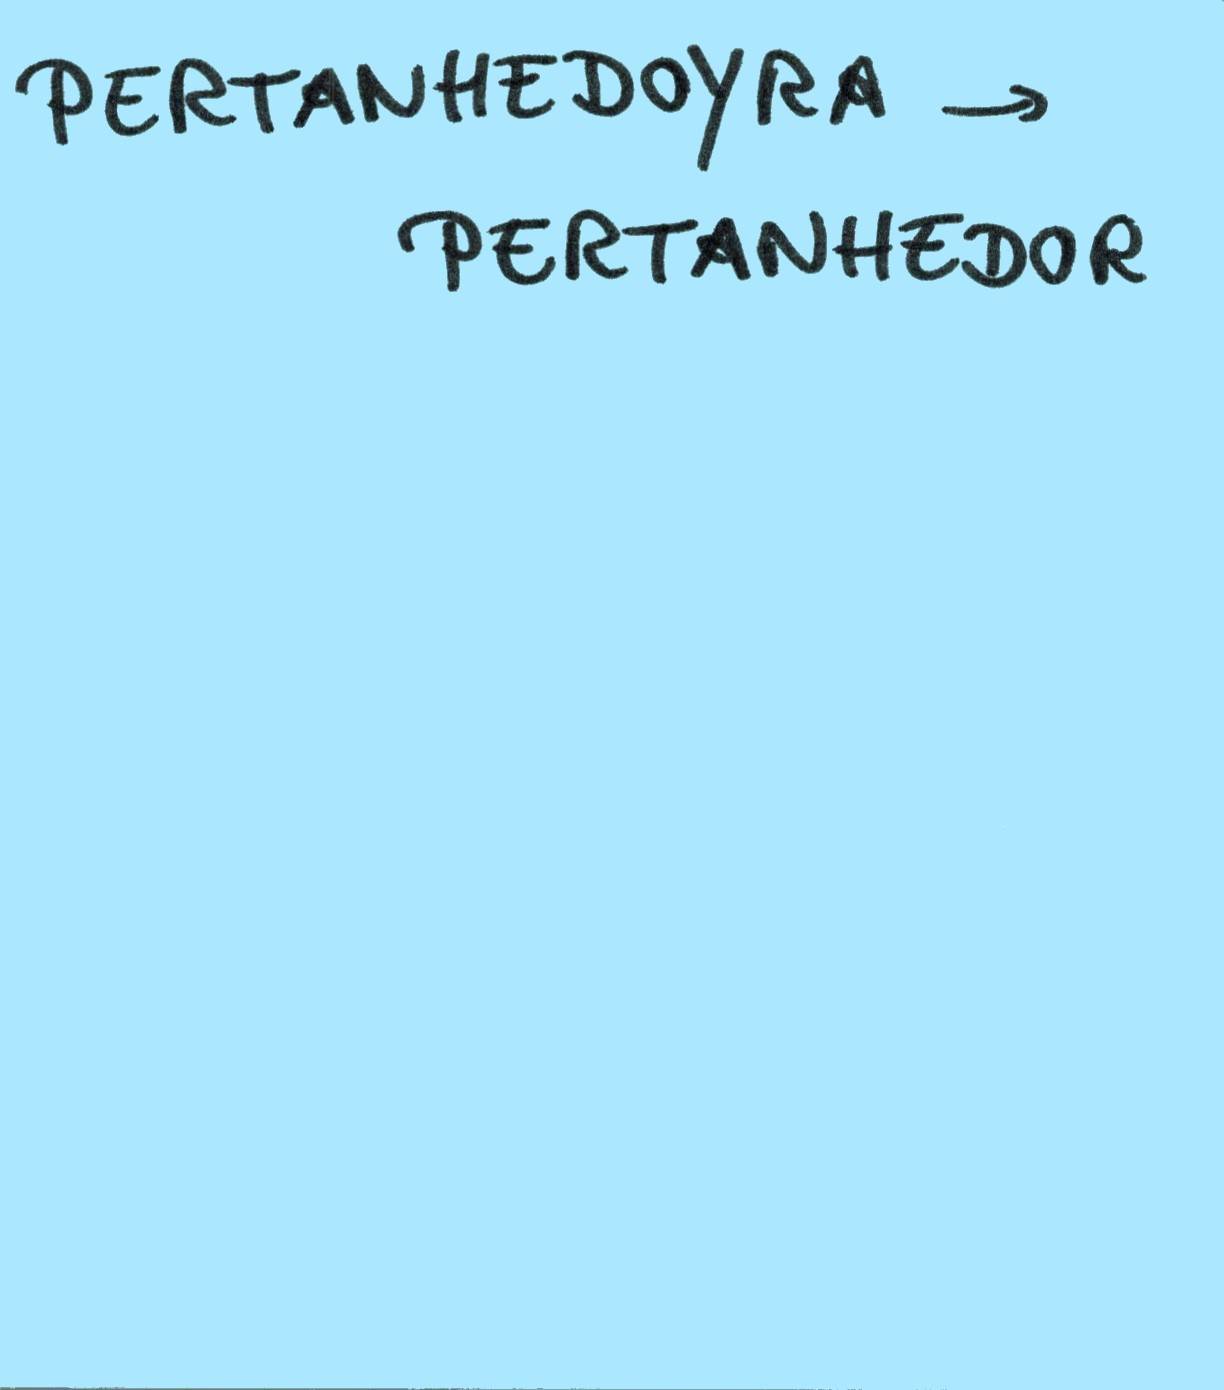 PERTANHEDOYRA →
PERTANHEDOR